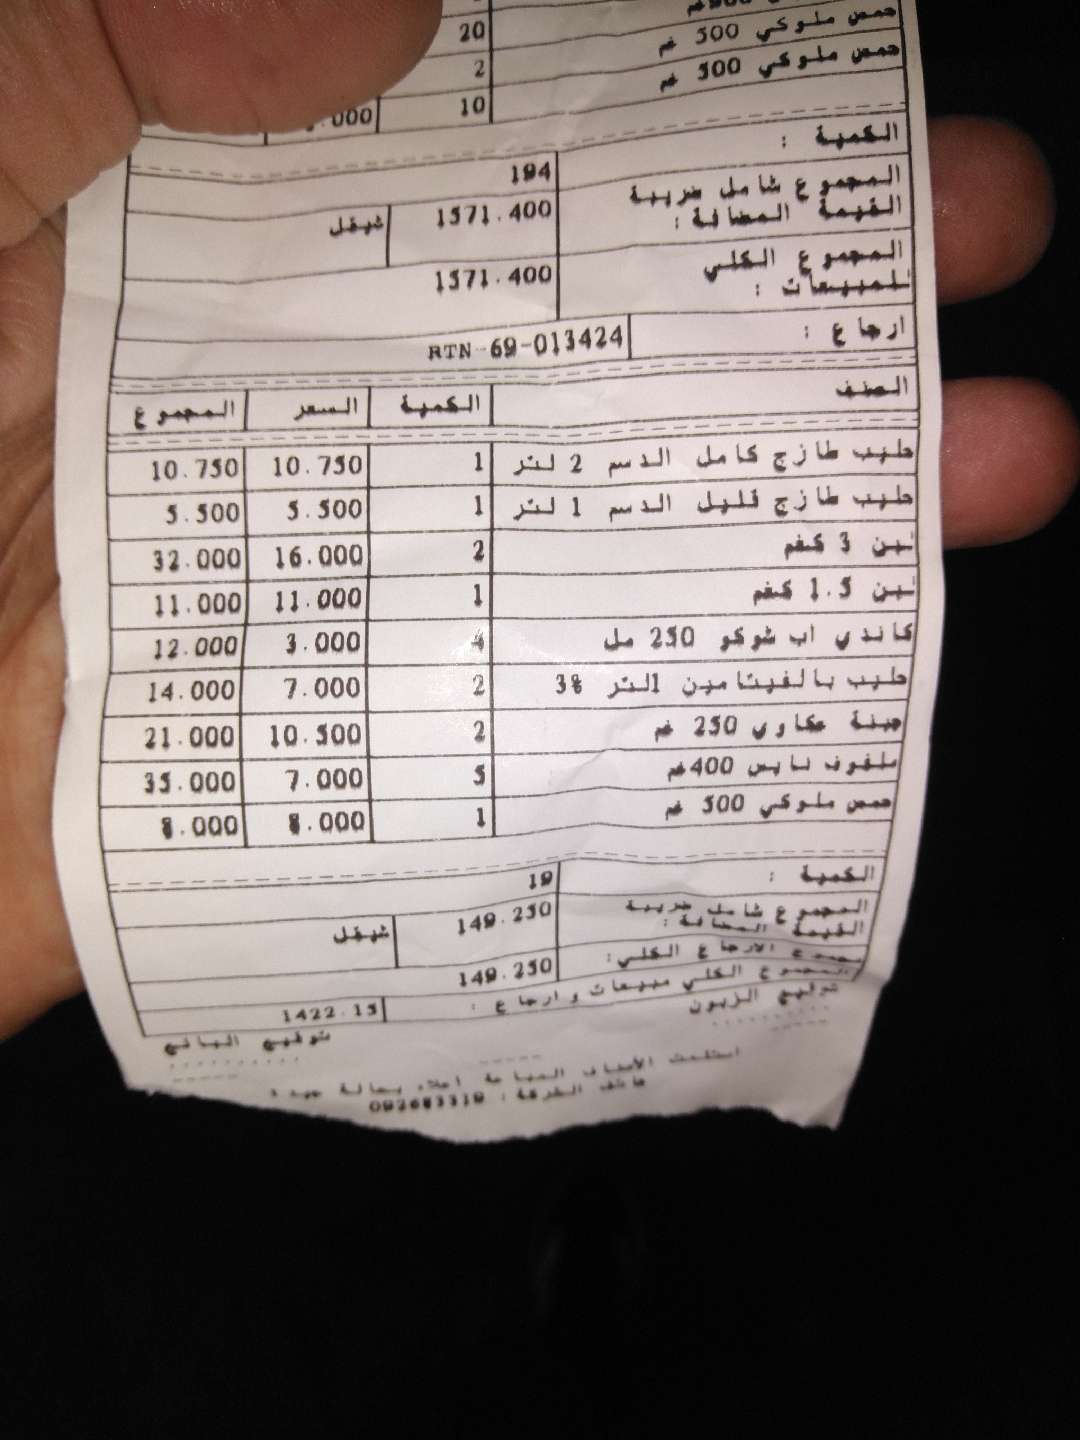 20
حمص ملوكي 500 غم 2
حمص ملوكي 500 غم 10
الكمية : 194
المجموع شامل ضريبة
القيمة المضافة : 1571.400 شيقل
المجموع الكلي
للمبيعات : 1571.400
ارجاع : RTN-69-013424
الصنف الكمية السعر المجموع
حليب طازج كامل الدسم 2 لتر 1 10.750 10.750
حليب طازج قليل الدسم 1 لتر 1 5.500 5.500
لبن 3 كغم 2 16.000 32.000
لبن 1.5 كغم 1 11.000 11.000
كاندي اب شوكو 250 مل 4 3.000 12.000
حليب بالفيتامين 1لتر 3% 2 7.000 14.000
جبنة عكاوي 250 غم 2 10.500 21.000
ملفوف نايس 400غم 5 7.000 35.000
حمص ملوكي 500 غم 1 8.000 8.000
الكمية : 19
المجموع شامل ضريبة
القيمة المضافة : 149.250 شيقل
مجموع الارجاع الكلي: 149.250
المجموع الكلي مبيعات وارجاع : 1422.15
توقيع الزبون توقيع البائع
استلمت الأصناف المباعة اعلاه بحالة جيدة
هاتف الشركة : 092683319